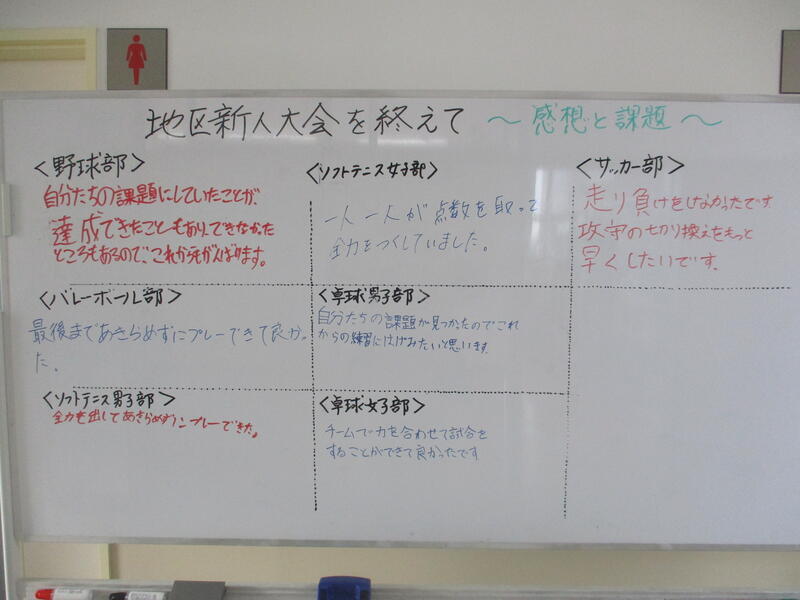 地区新人大会を終えて ～感想と課題～
<野球部>
自分たちの課題にしていたことが、
達成できたこともあり、できなかった
ところもあるので、これから元がんばります。
<バレーボール部>
最後まであきらめずにプレーできて良かっ
た。
<ソフトテニス男子部>
全力を出してあきらめずにプレーできた。
<ソフトテニス女子部>
一人一人が点数を取って
全力をつくしていました。
<卓球男子部>
自分たちの課題が見つかたのでこれ
からの練習にはげみたいと思います。
<卓球女子部>
チームで力を合わせて試合を
することができて良かったです
<サッカー部>
走り負けをしなかったです
攻守の切り換えをもっと
早くしたいです。